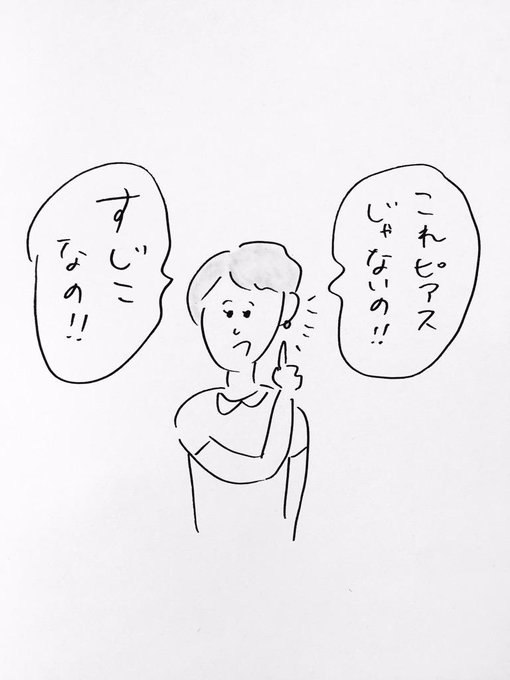 これピアス
じゃないの!!
すじこ
なの!!